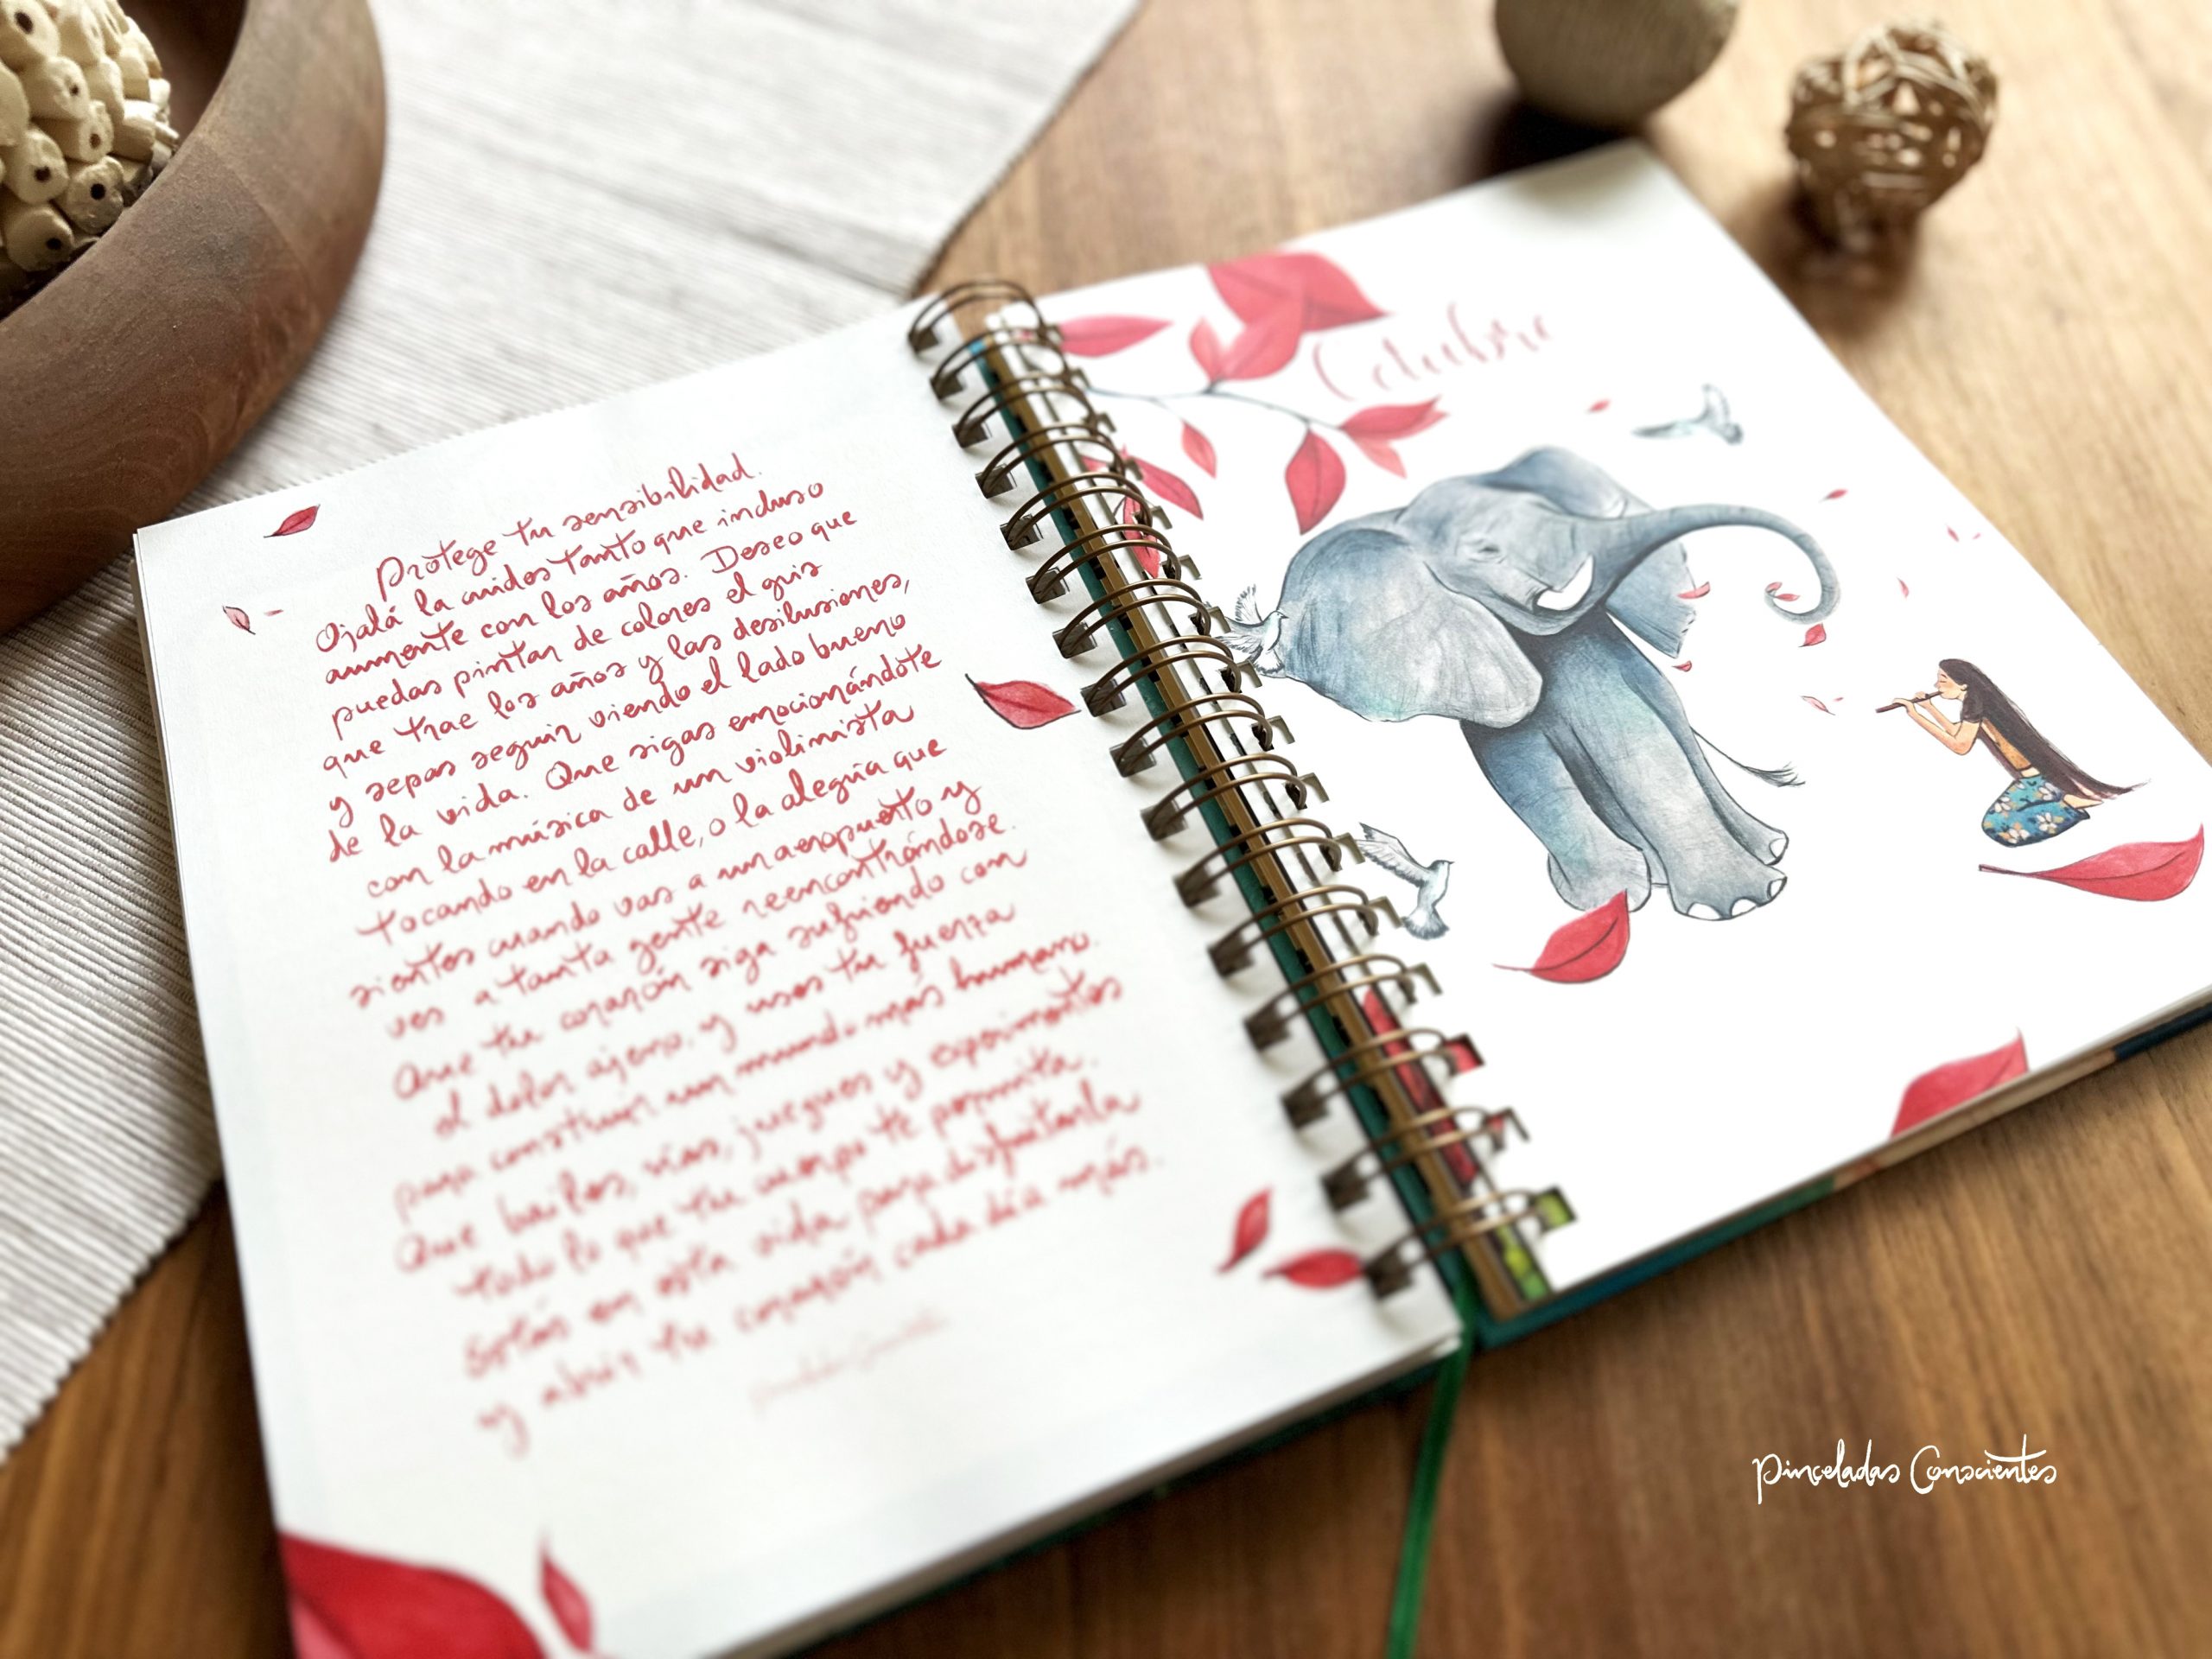 Protege tu sensibilidad.
Ojalá la cuides tanto que incluso
aumente con los años. Deseo que
puedas pintar de colores el gris
que trae los años y las desilusiones,
y sepas seguir viendo el lado bueno
de la vida. Que sigas emocionándote
con la música de un violinista
tocando en la calle, o la alegría que
sientes cuando vas a un aeropuerto y
ves a tanta gente reencontrándose.
Que tu corazón siga sufriendo con
el dolor ajeno, y uses tu fuerza
para construir un mundo más humano.
Que bailes, rías, juegues y experimentes
todo lo que tu cuerpo te permita.
Estás en esta vida para disfrutarla
y abrir tu corazón cada día más.
Pinceladas Conscientes